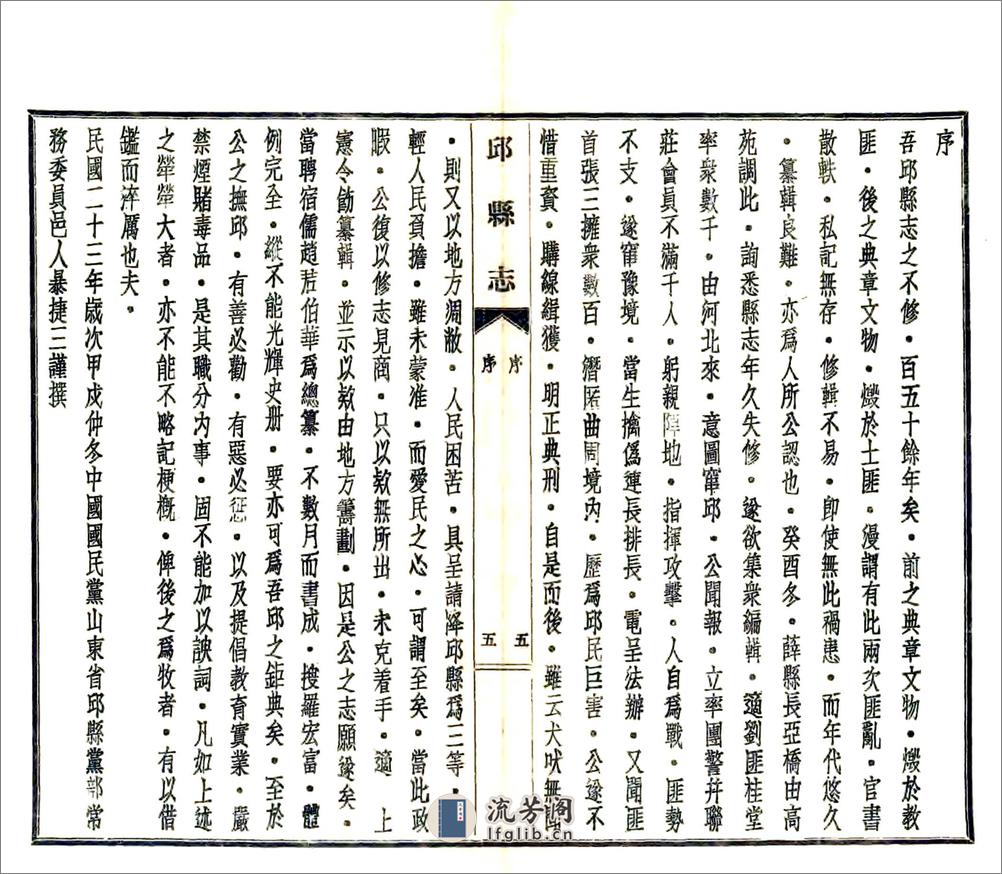 序
吾邱縣志之不修。百五十餘年矣。前之典章文物。燬於教
匪。後之典章文物。燬於土匪。漫謂有此兩次匪亂。官書
散軼。私記無存。修輯不易。卽使無此禍患。而年代悠久
。纂輯良難。亦爲人所公認也。癸酉冬。薛縣長亞橋由高
苑調此。詢悉縣志年久失修。遂欲集衆編輯。適劉匪桂堂
率衆數千。由河北來。意圖竄邱。公聞報。立率團警幷聯
莊會員不滿千人。躬親陣地。指揮攻擊。人自爲戰。匪勢
不支。遂竄豫境。當生擒僞連長排長。電呈法辦。又聞匪
首張三擁衆數百。潛匿曲周境內。歷爲邱民巨害。公遂不
惜重賚。購線緝獲。明正典刑。自是而後。雖云犬吠無
邱縣志
序
五
序
五
。則又以地方凋敝。人民困苦。具呈請降邱縣爲三等。
輕人民負擔。雖未蒙准。而愛民之心。可謂至矣。當此政
暇。公復以修志見商。只以欵無所出。未克着手。適 上
憲令飭纂輯。並示以欵由地方籌劃。因是公之志願遂矣。
當聘宿儒趙君伯華爲總纂。不數月而書成。搜羅宏富。體
例完全。縱不能光輝史册。要亦可爲吾邱之鉅典矣。至於
公之撫邱。有善必勸。有惡必懲。以及提倡教育實業。嚴
禁煙賭毒品。是其職分內事。固不能加以諛詞。凡如上述
之犖犖大者。亦不能不略記梗槪。俾後之爲牧者。有以借
鑑而淬厲也夫。
民國二十三年歲次甲戌仲冬中國國民黨山東省邱縣黨部常
務委員邑人暴捷三謹撰
流芳閣
lfglib.cn